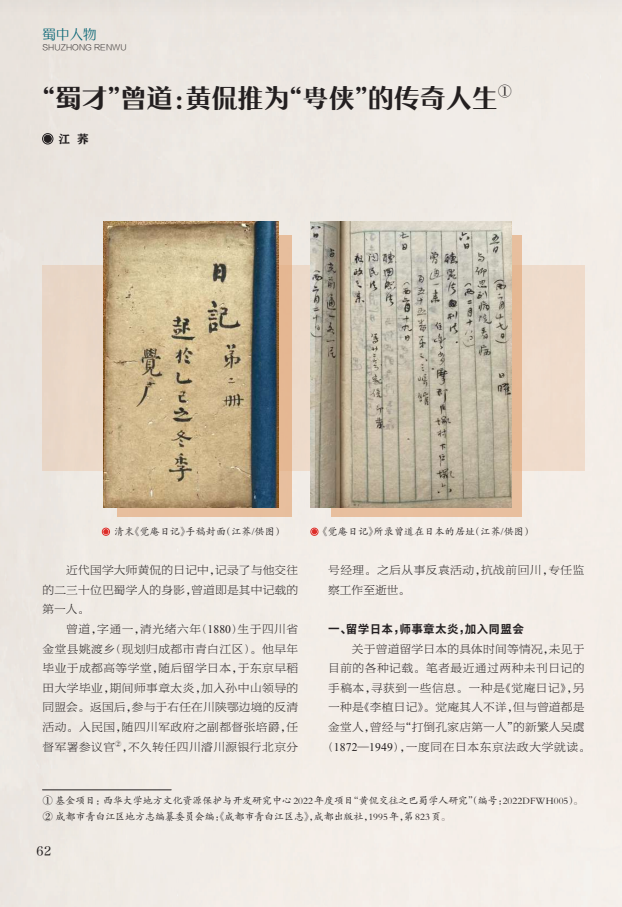 蜀中人物
SHUZHONG RENWU
“蜀才”曾道:黄侃推为“甹侠”的传奇人生①
◉ 江 荞
日記 第二册
起於乙巳之冬季
覺厂
五日 (西二月十七日) 日曜
六日 (西二月十八)
七日 (西二月十九日)
◉ 清末《觉庵日记》手稿封面(江荞/供图)
◉《觉庵日记》所录曾道在日本的居址(江荞/供图)
近代国学大师黄侃的日记中,记录了与他交往
的二三十位巴蜀学人的身影,曾道即是其中记载的
第一人。
曾道,字通一,清光绪六年(1880)生于四川省
金堂县姚渡乡(现划归成都市青白江区)。他早年
毕业于成都高等学堂,随后留学日本,于东京早稻
田大学毕业,期间师事章太炎,加入孙中山领导的
同盟会。返国后,参与于右任在川陕鄂边境的反清
活动。入民国,随四川军政府之副都督张培爵,任
督军署参议官②,不久转任四川濬川源银行北京分
号经理。之后从事反袁活动,抗战前回川,专任监
察工作至逝世。
一、留学日本,师事章太炎,加入同盟会
关于曾道留学日本的具体时间等情况,未见于
目前的各种记载。笔者最近通过两种未刊日记的
手稿本,寻获到一些信息。一种是《觉庵日记》,另
一种是《李植日记》。觉庵其人不详,但与曾道都是
金堂人,曾经与“打倒孔家店第一人”的新繁人吴虞
(1872—1949),一度同在日本东京法政大学就读。
① 基金项目:西华大学地方文化资源保护与开发研究中心2022年度项目“黄侃交往之巴蜀学人研究”(编号:2022DFWH005)。
② 成都市青白江区地方志编纂委员会编:《成都市青白江区志》,成都出版社,1995年,第823页。
62